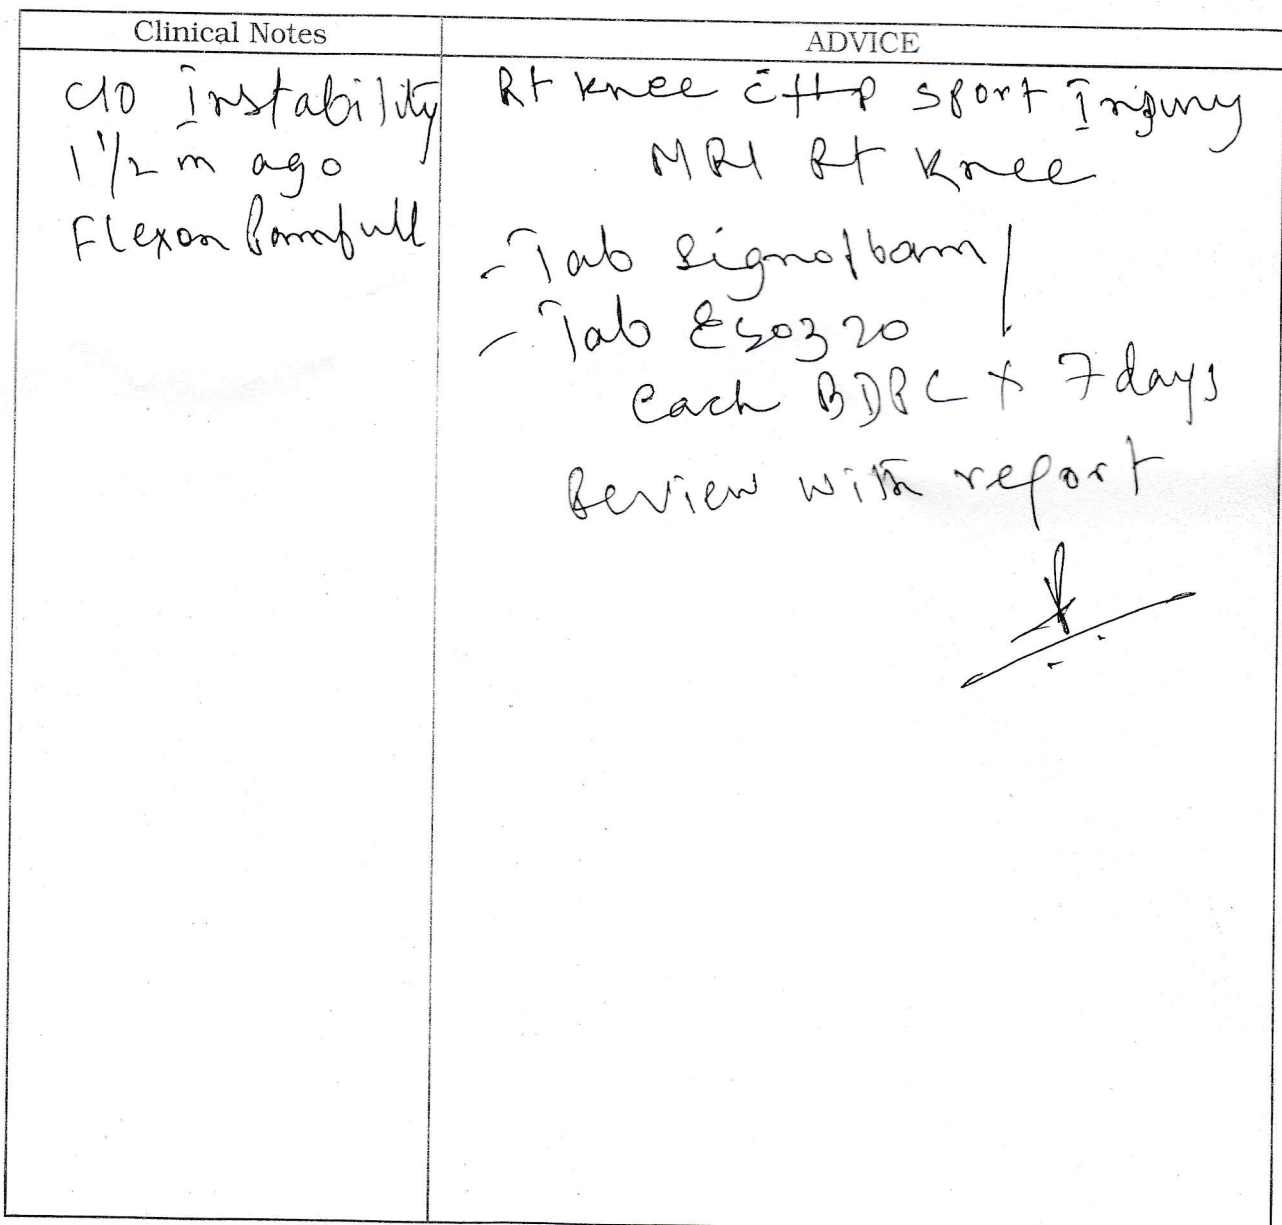 Clinical Notes
ADVICE
C/O Instability
1 1/2 m ago
Flexon Painfull
Rt knee c̄ H/o sport Injury
MRI Rt Knee
- Tab Signoflam
- Tab Esoz 20
each BDPC x 7 days
Review with report